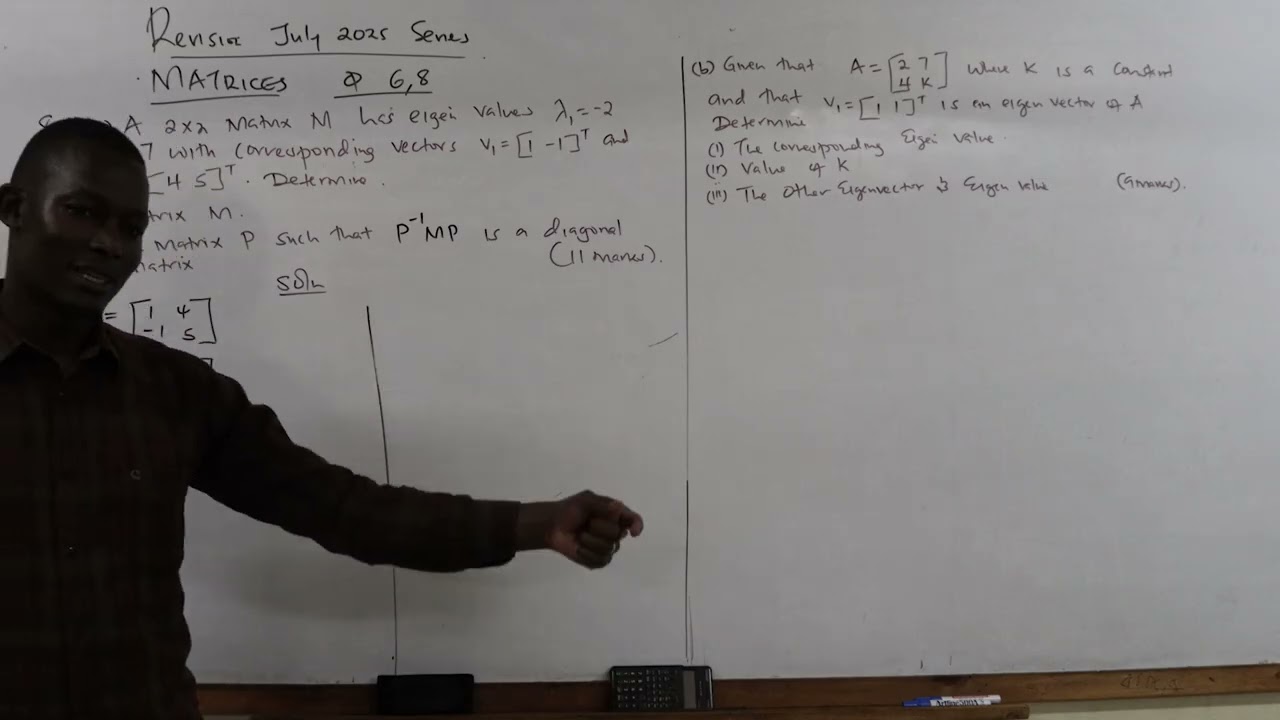 Revision July 2025 Series
MATRICES Q 6,8
A 2x2 Matrix M has eigen values λ₁=-2
7 with corresponding vectors V₁=[1 -1]ᵀ and
[4 5]ᵀ. Determine.
trix M.
Matrix P such that P⁻¹MP is a diagonal
matrix (11 marks).
Soln
= [1 4
-1 5]
(b) Given that A = [2 7
4 K] where K is a constant
and that V₁=[1 1]ᵀ is an eigen vector of A
Determine
(i) The corresponding Eigen value.
(ii) Value of K
(iii) The other Eigenvector & Eigen value (9marks).